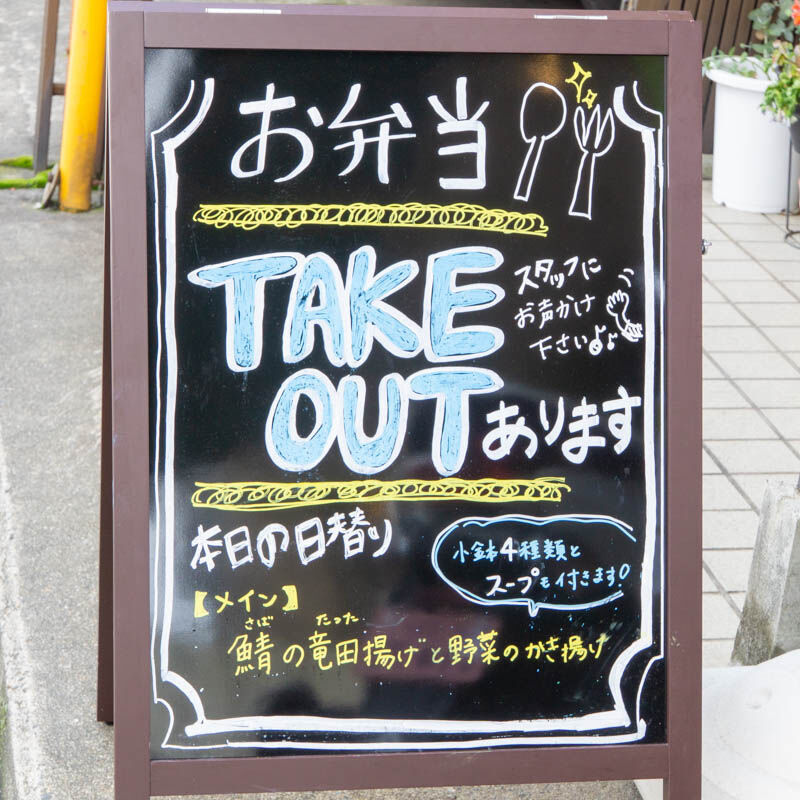 お弁当
TAKE
OUT あります
スタッフに
お声かけ
下さい♪♪
本日の日替り
小鉢4種類と
スープも付きます
【メイン】
さば たつた
鯖の竜田揚げと野菜のかき揚げ